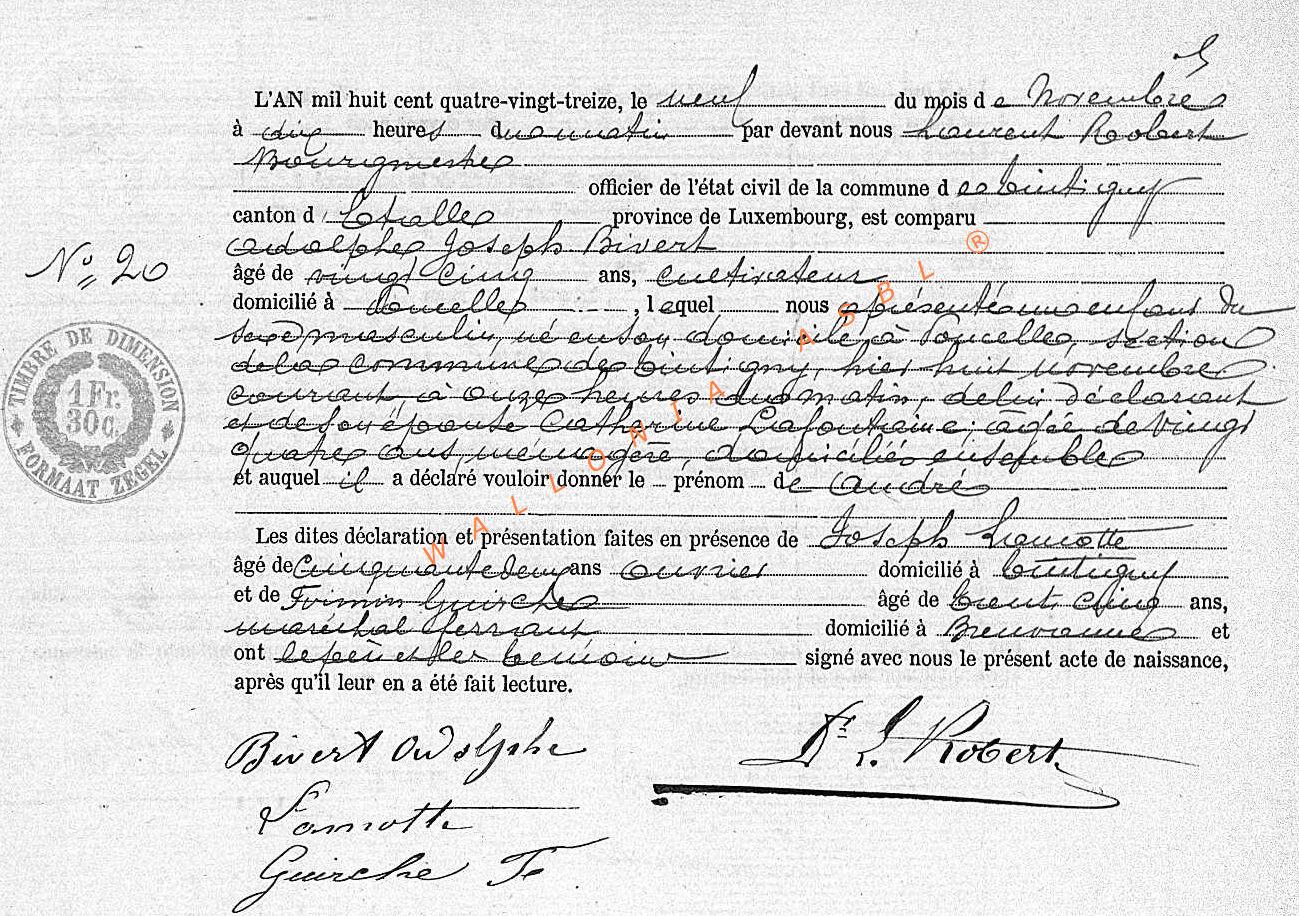 L'AN mil huit cent quatre-vingt-treize, le neuf du mois de Novembre
à dix heures du matin par devant nous Laurent Robert
Bourgmestre
officier de l'état civil de la commune de Tintigny
canton d'Etalle province de Luxembourg, est comparu
Adolphe Joseph Bivert
No 20
âgé de vingt cinq ans, cultivateur
domicilié à Poncelle, lequel nous a présenté un enfant du
sexe masculin, né en son domicile à Poncelle, section
de la commune de Tintigny, hier huit novembre
courant à onze heures du matin, de lui déclarant
et de son épouse Catherine Lafontaine, âgée de vingt
quatre ans, ménagère, domiciliés ensemble
et auquel il a déclaré vouloir donner le prénom de André
Les dites déclaration et présentation faites en présence de Joseph Lamotte
âgé de Cinquante deux ans ouvrier domicilié à Tintigny
et de Firmin Guirche âgé de trente cinq ans,
maréchal ferrant domicilié à Breuvanne et
ont le père et les témoins signé avec nous le présent acte de naissance,
après qu'il leur en a été fait lecture.
Bivert Adolphe
Dr L. Robert
Lamotte
Guirche F
TIMBRE DE DIMENSION
1 Fr.
30 C.
FORMAAT ZEGEL
WALLONIA ASBL ®